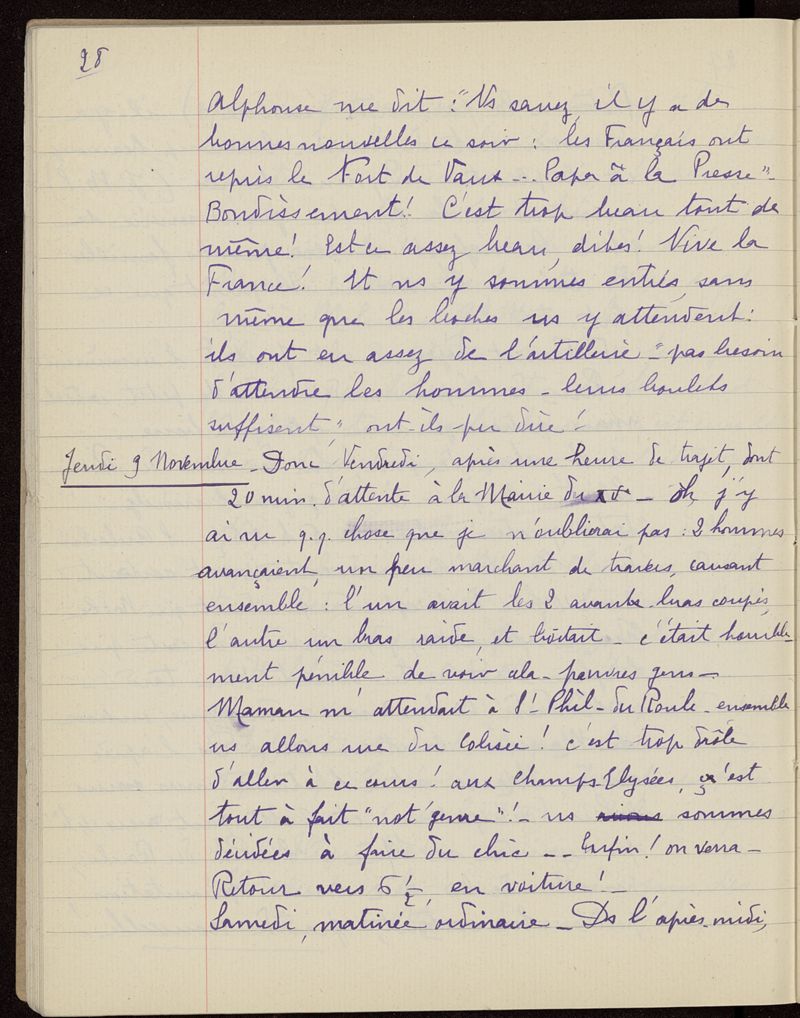 28
Alphonse me dit : "Vs savez, il y a de
bonnes nouvelles ce soir : les Français ont
repris le Fort de Vaux ... Papa à la Presse" -
Bondissement! C'est trop beau tout de
même! Est ce assez beau, dites! Vive la
France! Et ns y sommes entrés, sans
même que les boches ns y attendent :
ils ont eu assez de l'artillerie - "pas besoin
d'attendre les hommes - leurs boulets
suffisent", ont-ils pu dire!
Jeudi 9 Novembre - Donc Vendredi, après une heure de trajet, dont
20 min. d'attente à la Mairie du - oh, j'y
ai vu q.q. chose que je n'oublierai pas : 2 hommes
avançaient, un peu marchant de travers, causant
ensemble : l'un avait les 2 avants-bras coupés,
l'autre un bras raide, et boitait - c'était horrible-
ment pénible de voir cela - pauvres gens -
Maman m'attendait à St Phil-du Roule - ensemble
ns allons rue du Colisée! c'est trop drôle
d'aller à ce cours! aux Champs-Elysées, ç'est
tout à fait "not' genre"! - ns sommes
décidées à faire du chic -- Enfin! on verra -
Retour vers 6 1/2, en voiture! -
Samedi, matinée ordinaire - Ds l'après-midi,